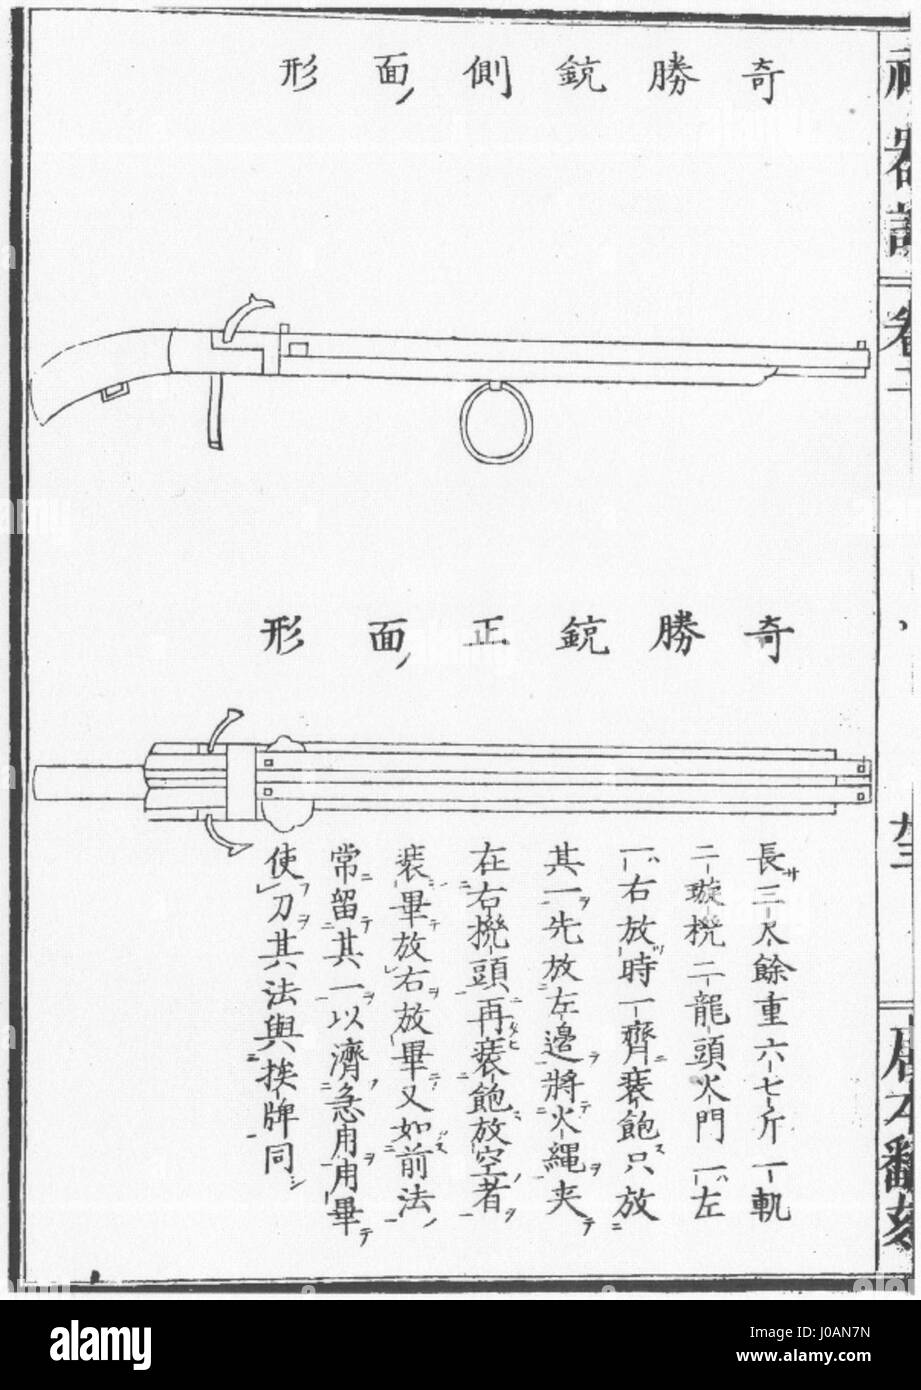 神器譜
卷二
唐本翻刻
奇勝銃側面形
奇勝銃正面形
長三尺餘重六七斤一軌
二璇機二龍頭火門一左
一右放時一齊裝飽只放
其一先放左邊將火繩夾
在右機頭再裝飽放空者
裝畢放右放畢又如前法
常留其一以濟急用用畢
使刀其法與挨牌同
alamy stock photo
J0AN7N
www.alamy.com